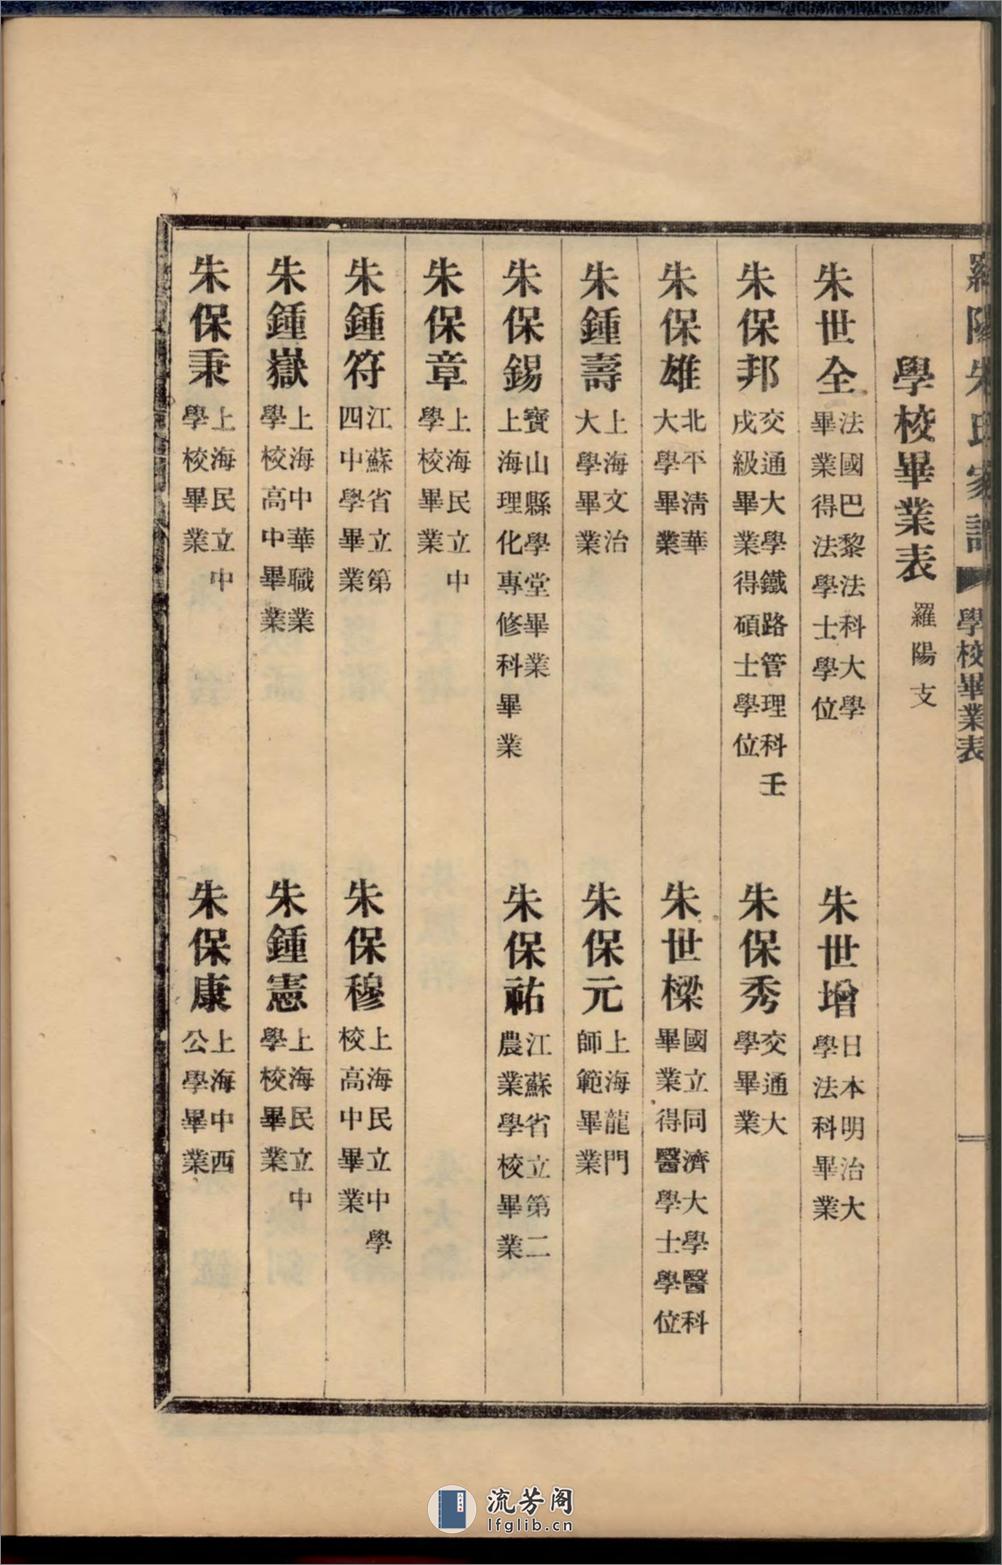 羅陽朱氏家譜 學校畢業表 一
學校畢業表 羅陽支
朱世全 法國巴黎法科大學畢業得法學士學位
朱世增 日本明治大學法科畢業
朱保邦 交通大學鐵路管理科壬戌級畢業得碩士學位
朱保秀 交通大學畢業
朱保雄 北平清華大學畢業
朱世樑 國立同濟大學醫科畢業得醫學士學位
朱鍾壽 上海文治大學畢業
朱保元 上海龍門師範畢業
朱保錫 寶山縣學堂畢業上海理化專修科畢業
朱保祐 江蘇省立第二農業學校畢業
朱保章 上海民立中學校畢業
朱鍾符 江蘇省立第四中學畢業
朱保穆 上海民立中學校高中畢業
朱鍾嶽 上海中華職業學校高中畢業
朱鍾憲 上海民立中學校畢業
朱保秉 上海民立中學校畢業
朱保康 上海中西公學畢業
流芳阁
lfglib.cn